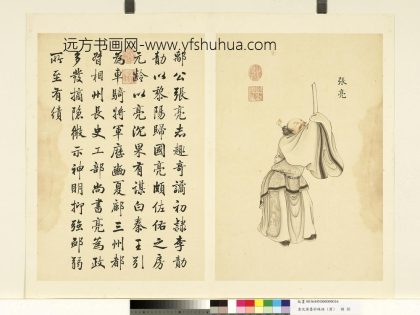 远方书画网-www.yfshuhua.com
張亮
鄖公張亮志趣奇譎初隸李勣
勣以黎陽歸國亮頗佐佑之房
元齡以亮沉果有謀白秦王引
為車騎將軍歷豳夏鄜三州都
督相州長史工部尚書亮為政
多發摘隱微示神明抑強卹弱
所至有績